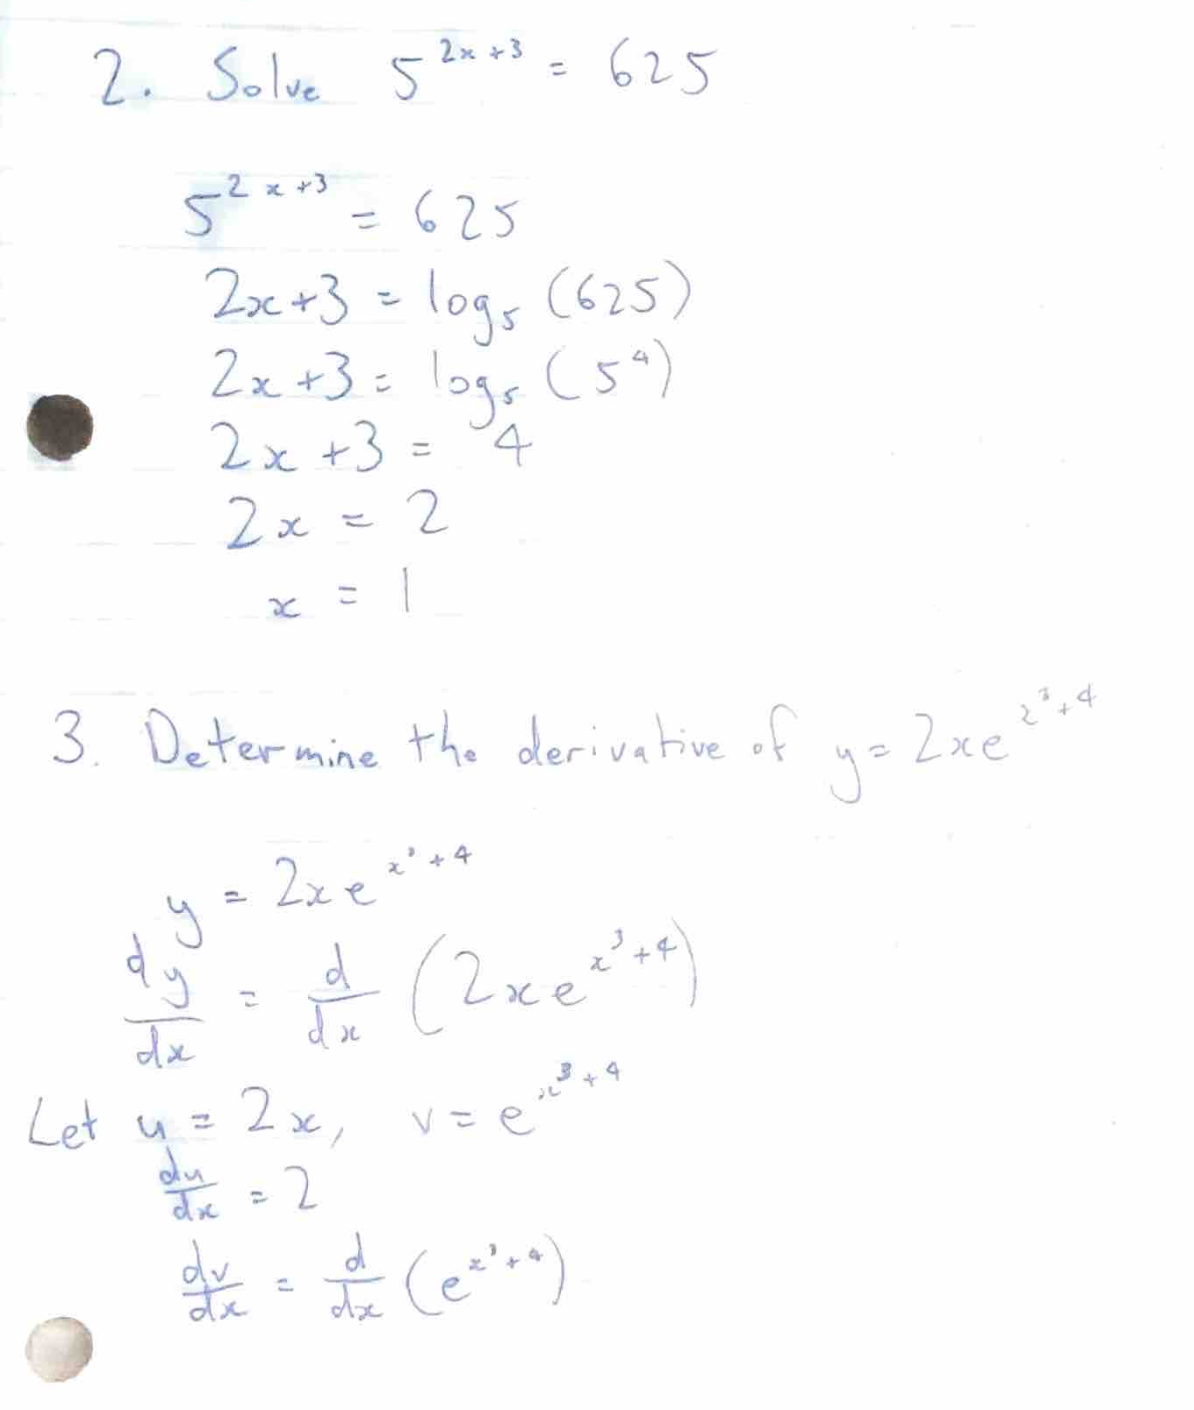 2. Solve 5^{2x+3} = 625
5^{2x+3} = 625
2x+3 = log₅ (625)
2x+3 = log₅ (5⁴)
2x+3 = 4
2x = 2
x = 1
3. Determine the derivative of y = 2xe^{x³+4}
y = 2xe^{x³+4}
dy/dx = d/dx (2xe^{x³+4})
Let u = 2x, v = e^{x³+4}
du/dx = 2
dv/dx = d/dx (e^{x³+4})